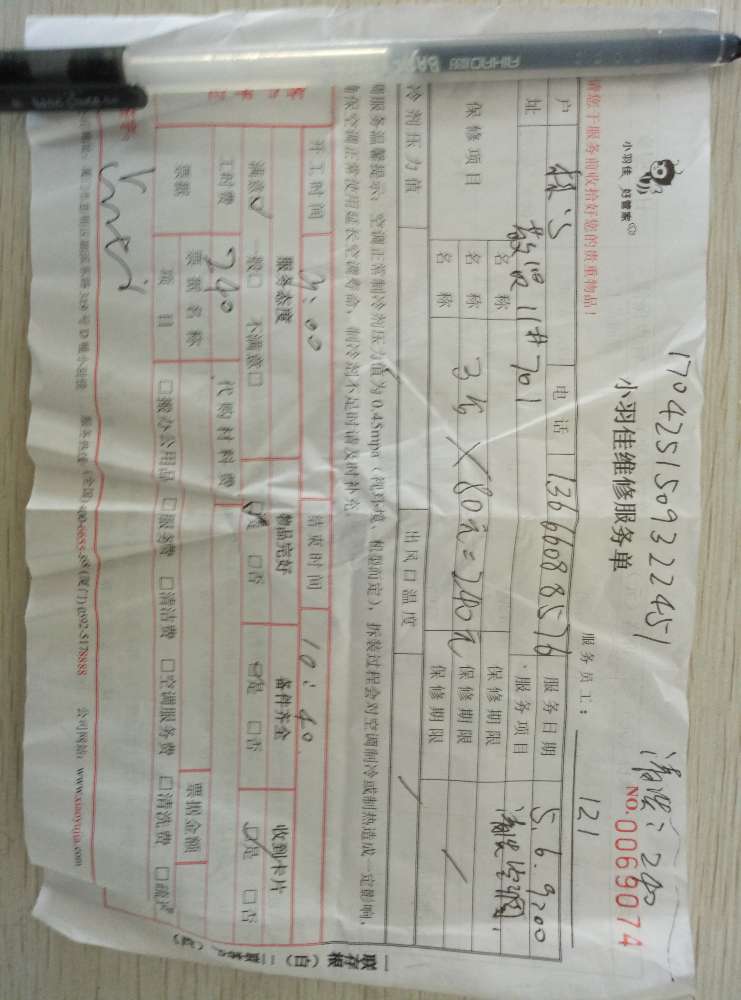 170425150932245​1
清洗：240
小羽佳 好管家
小羽佳维修服务单
NO. 0069074
请您于服务前收拾好您的贵重物品！
服务员工： 121
户 电话 13666088576 服务日期 5.6.9:00
址 11# 701 服务项目 清洗空调
保修项目 名称 保修期限
名称 3台×80元=240元 保修期限
名称 保修期限
冷剂压力值 出风口温度
服务温馨提示：空调正常制冷剂压力值为0.45mpa（视环境、机型而定），拆装过程会对空调制冷或制热造成一定影响，
保空调正常使用延长空调寿命，制冷剂不足时请及时补充。
开工时间 9:00 结束时间 10:40
服务态度 物品完好 备件齐全 收到卡片
满意☑ 一般□ 不满意□ ☑是 □否 ☑是 □否 ☑是 □否
工时费 240 代购材料费
票据 票据名称 票据金额
项目 □搬办公用品 □服务费 □清洁费 □空调服务费 □清洗费 □疏通
服务热线：(全国)400-6655-
(厦门)0592-5178888 公司网站：www.xiaoyujia.com
AIHAO